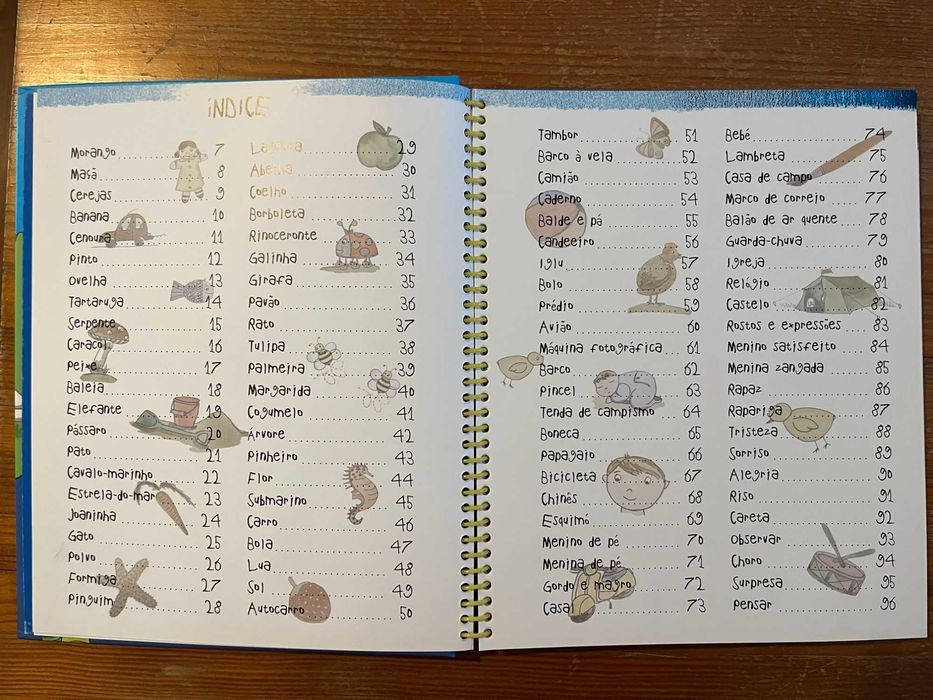 ÍNDICE
Morango 7
Maçã 8
Cerejas 9
Banana 10
Cenoura 11
Pinto 12
Ovelha 13
Tartaruga 14
Serpente 15
Caracol 16
Peixe 17
Baleia 18
Elefante 19
Pássaro 20
Pato 21
Cavalo-marinho 22
Estrela-do-mar 23
Joaninha 24
Gato 25
Polvo 26
Formiga 27
Pinguim 28
Lagosta 29
Abelha 30
Coelho 31
Borboleta 32
Rinoceronte 33
Galinha 34
Girafa 35
Pavão 36
Rato 37
Tulipa 38
Palmeira 39
Margarida 40
Cogumelo 41
Árvore 42
Pinheiro 43
Flor 44
Submarino 45
Carro 46
Bola 47
Lua 48
Sol 49
Autocarro 50
Tambor 51
Barco à vela 52
Camião 53
Caderno 54
Balde e pá 55
Candeeiro 56
Iglu 57
Bolo 58
Prédio 59
Avião 60
Máquina fotográfica 61
Barco 62
Pincel 63
Tenda de campismo 64
Boneca 65
Papagaio 66
Bicicleta 67
Chinês 68
Esquimó 69
Menino de pé 70
Menina de pé 71
Gordo e magro 72
Casal 73
Bebé 74
Lambreta 75
Casa de campo 76
Marco de correio 77
Balão de ar quente 78
Guarda-chuva 79
Igreja 80
Relógio 81
Castelo 82
Rostos e expressões 83
Menino satisfeito 84
Menina zangada 85
Rapaz 86
Rapariga 87
Tristeza 88
Sorriso 89
Alegria 90
Riso 91
Careta 92
Observar 93
Choro 94
Surpresa 95
Pensar 96